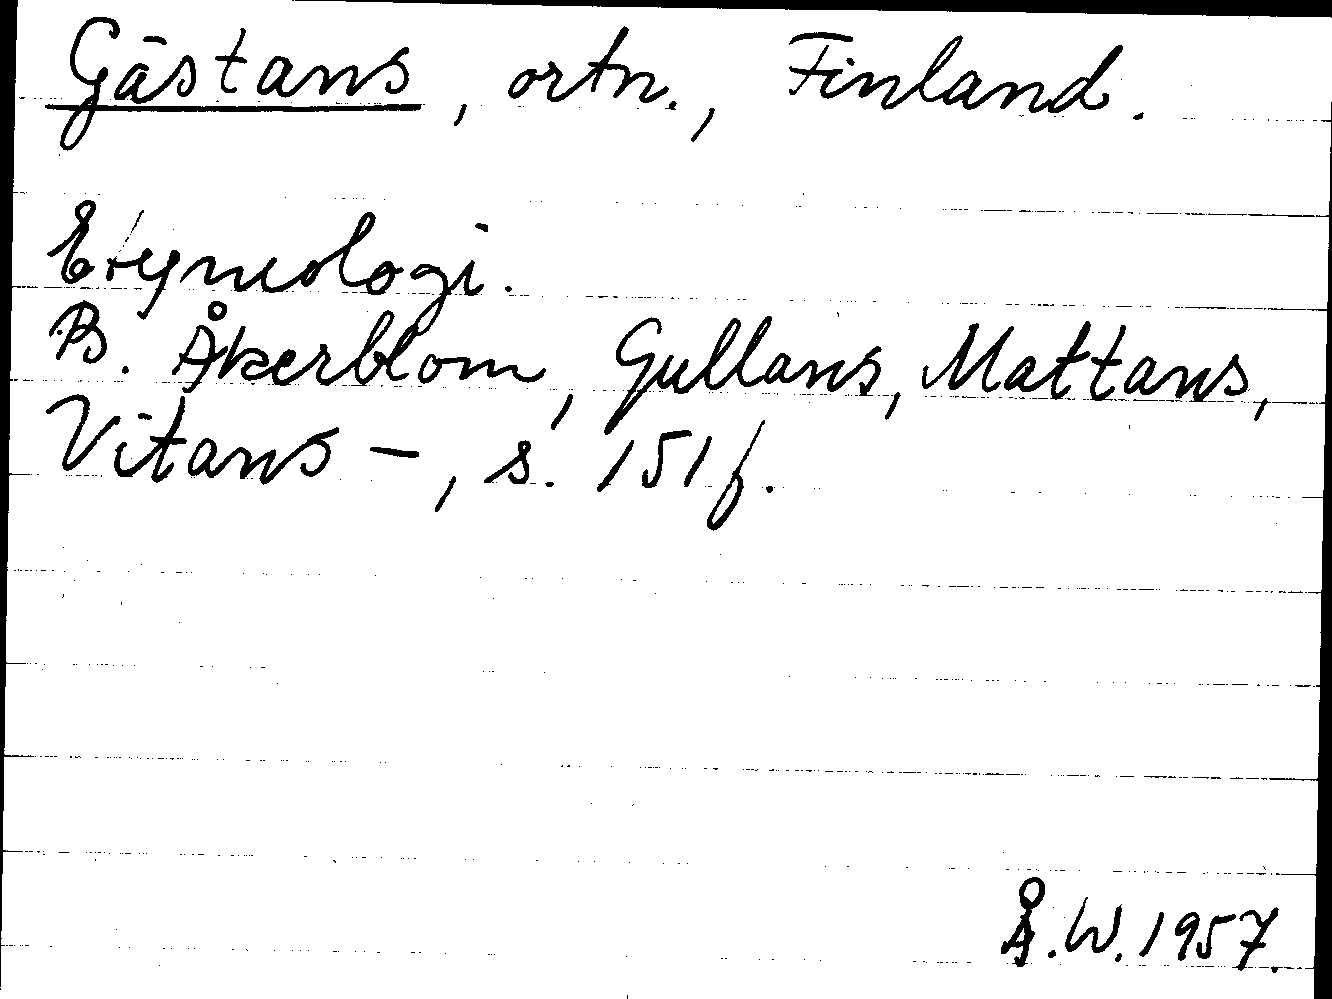 Gästans, ortn., Finland.
Etymologi.
B. Åkerblom, Gullans, Mattans,
Vitans –, s. 151 f.
Å.W. 1957.